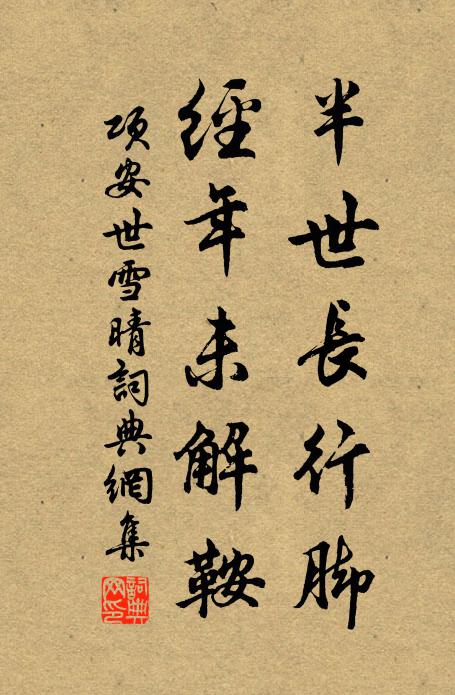 半世長行脚
經年未解鞍
項安世雪晴詞典網集
詞典网印